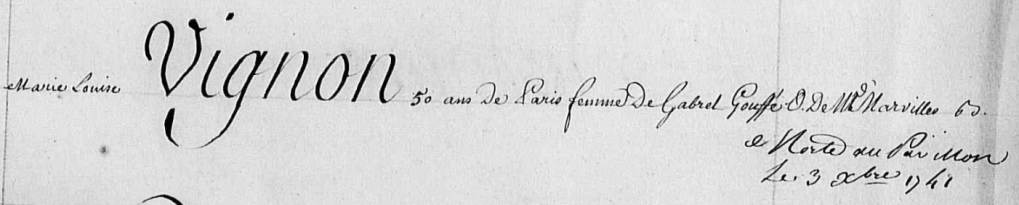 Marie Louise Vignon 50 ans de Paris femme De Gabrel Gouffé O. De Mr. Marvilles 6 d.
Morte au Pavillon
Le 3 xbre 1741